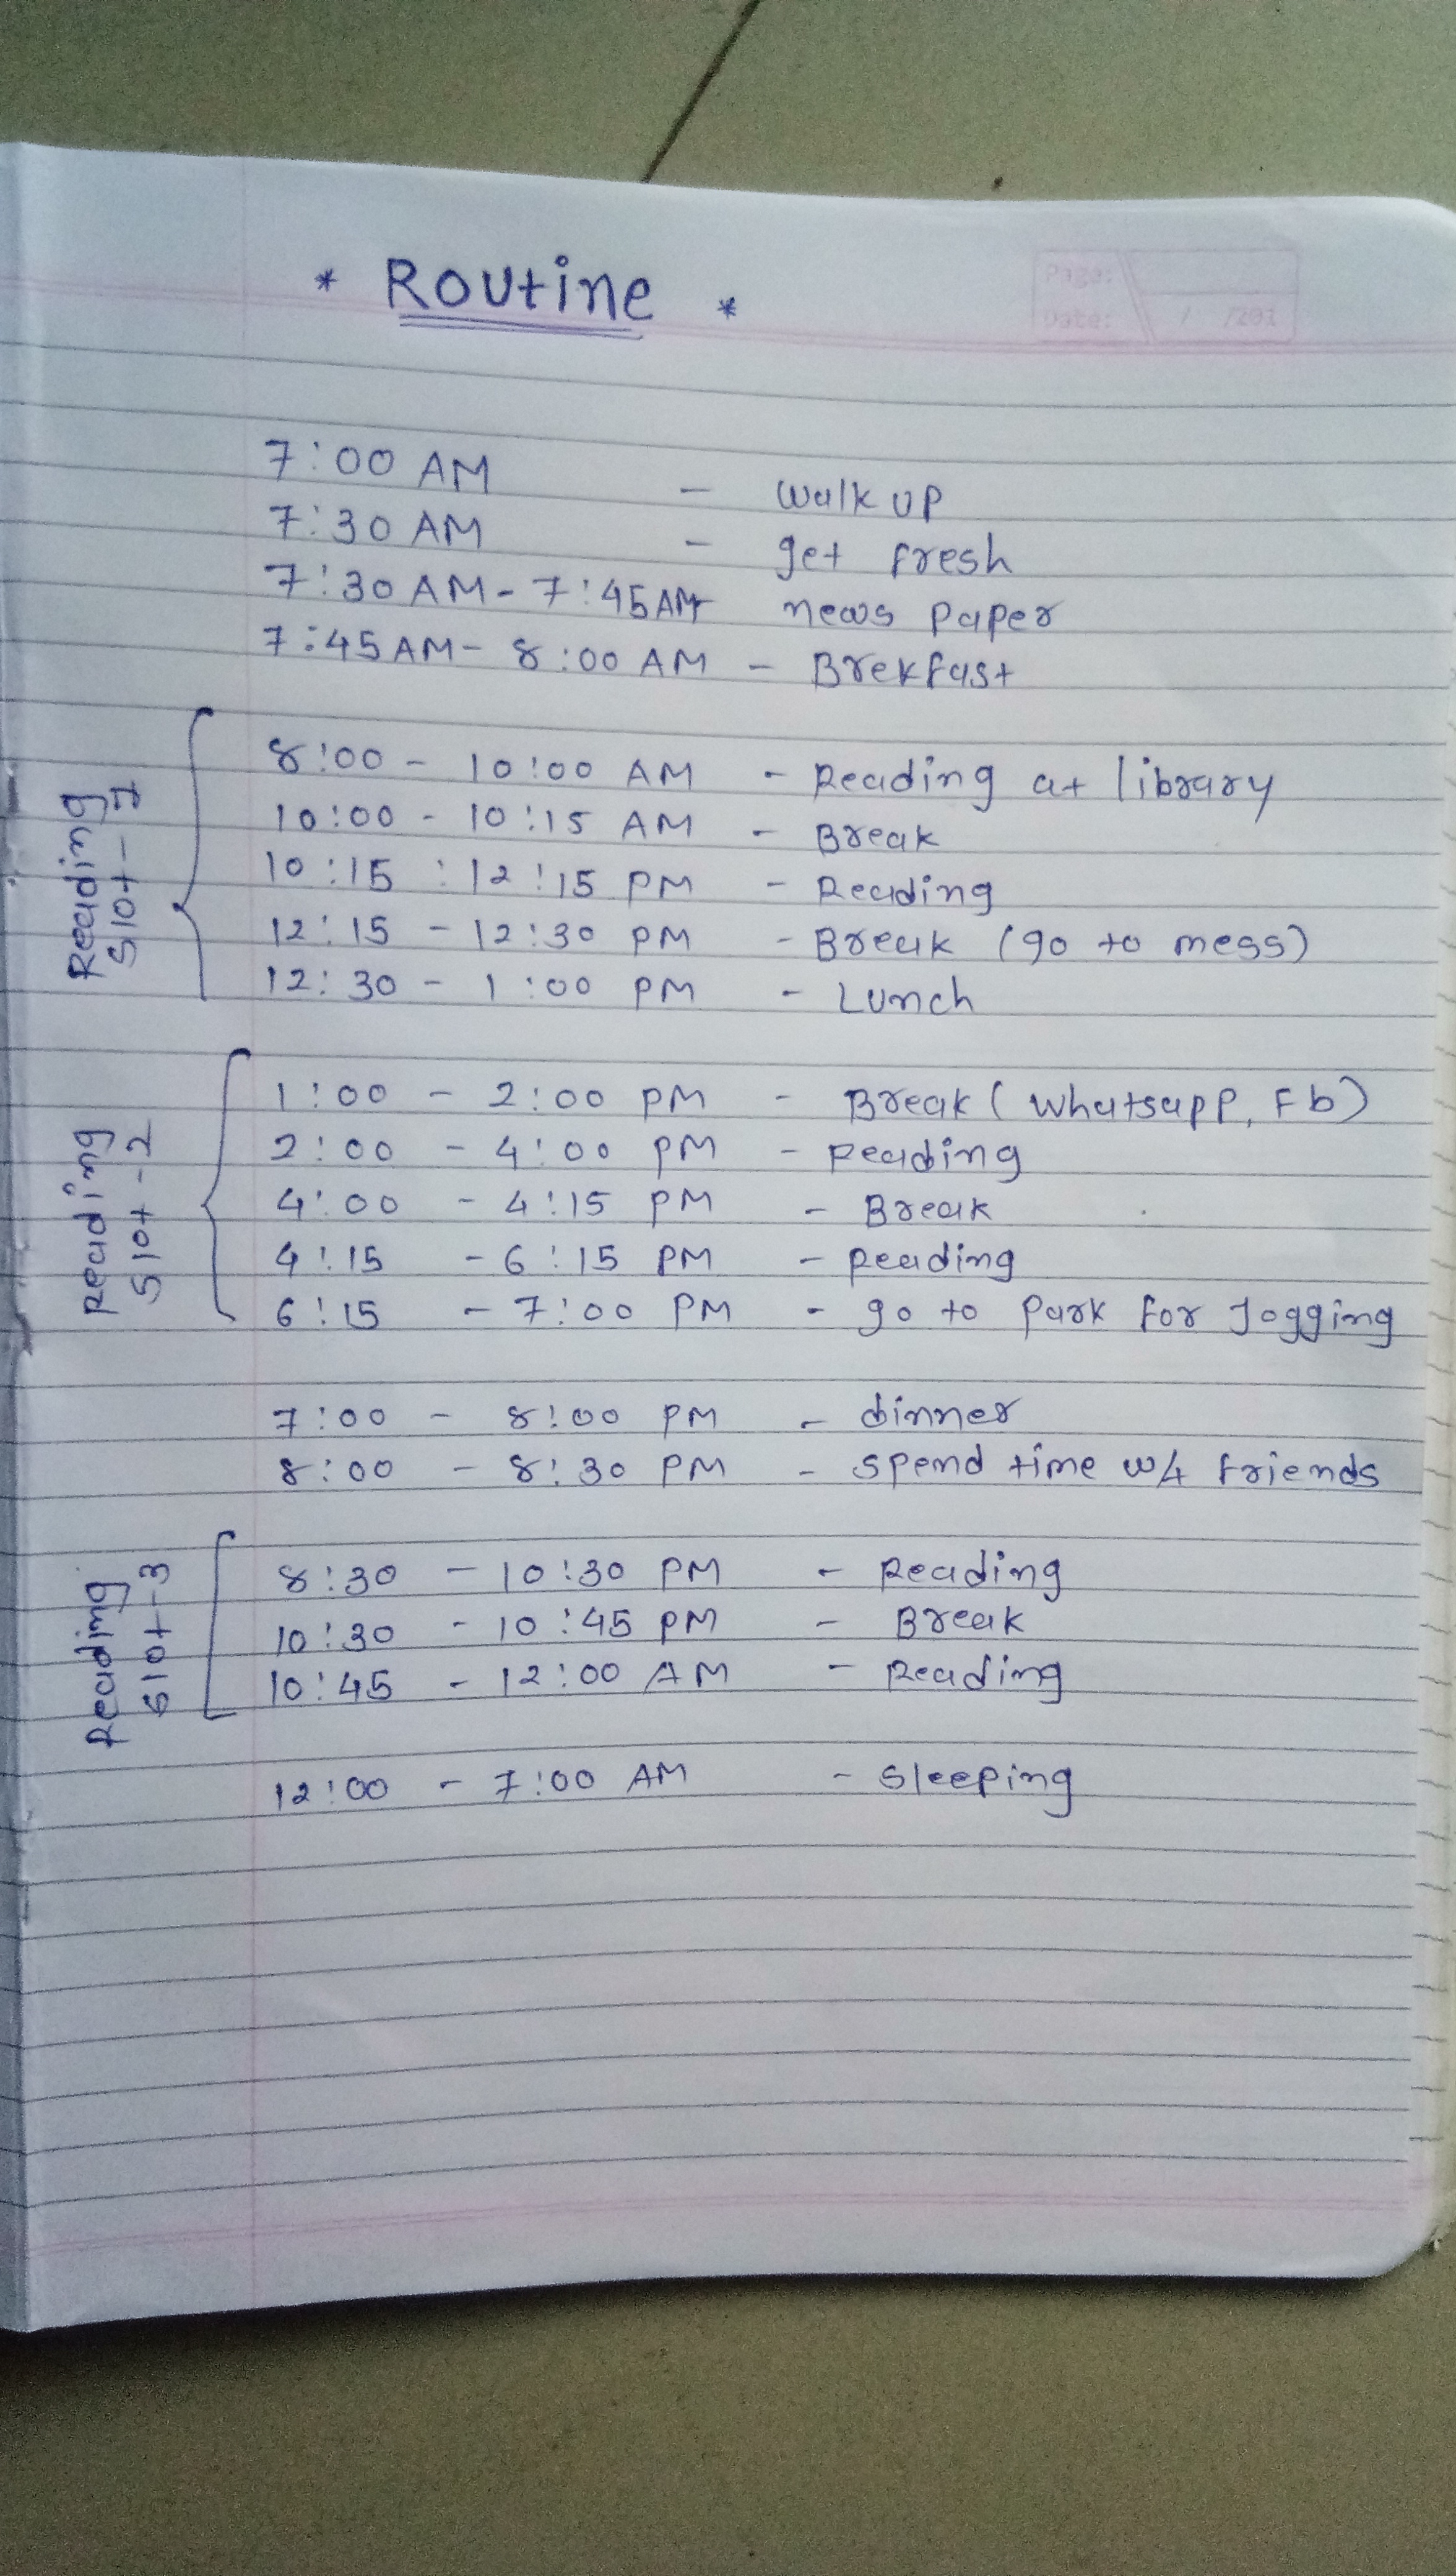 * Routine *
Page:
Date: / /201
7:00 AM - Walk up
7:30 AM - get fresh
7:30 AM - 7:45 AM news paper
7:45 AM - 8:00 AM - Brekfast
Reading Slot - 1
8:00 - 10:00 AM - Reading at library
10:00 - 10:15 AM - Break
10:15 : 12:15 PM - Reading
12:15 - 12:30 PM - Break (go to mess)
12:30 - 1:00 PM - Lunch
Reading Slot - 2
1:00 - 2:00 PM - Break (Whatsapp, Fb)
2:00 - 4:00 PM - Reading
4:00 - 4:15 PM - Break
4:15 - 6:15 PM - Reading
6:15 - 7:00 PM - go to Park for Jogging
7:00 - 8:00 PM - dinner
8:00 - 8:30 PM - spend time friends
Reading Slot - 3
8:30 - 10:30 PM - Reading
10:30 - 10:45 PM - Break
10:45 - 12:00 AM - Reading
12:00 - 7:00 AM - Sleeping